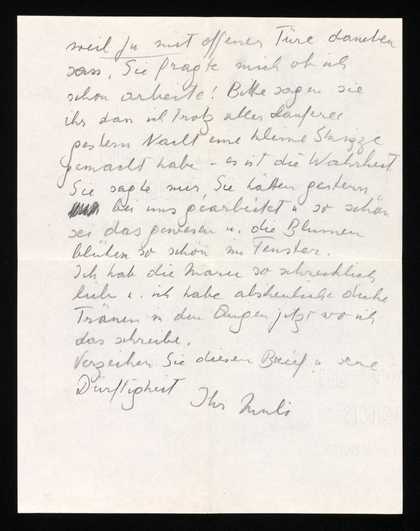 weil ja mit offener Türe daneben
sass. Sie fragte mich ob ich
schon arbeite! Bitte sagen sie
ihr dan ich trotz alles
gestern Nacht eine kleine Skizze
gemacht habe - es ist die Wahrheit
Sie sagte mir, Sie hätten gestern
bei uns gearbeitet u. so schön
sei das gewesen u. die Blumen
blühten so schön im Fenster.
Ich hab die Marie so schrecklich
lieb u. ich habe abscheuliche dicke
Tränen in den Augen jetzt wo ich
das schreibe.
Verzeihen Sie diesen Brief u. seine
Dürftigkeit
Ihr